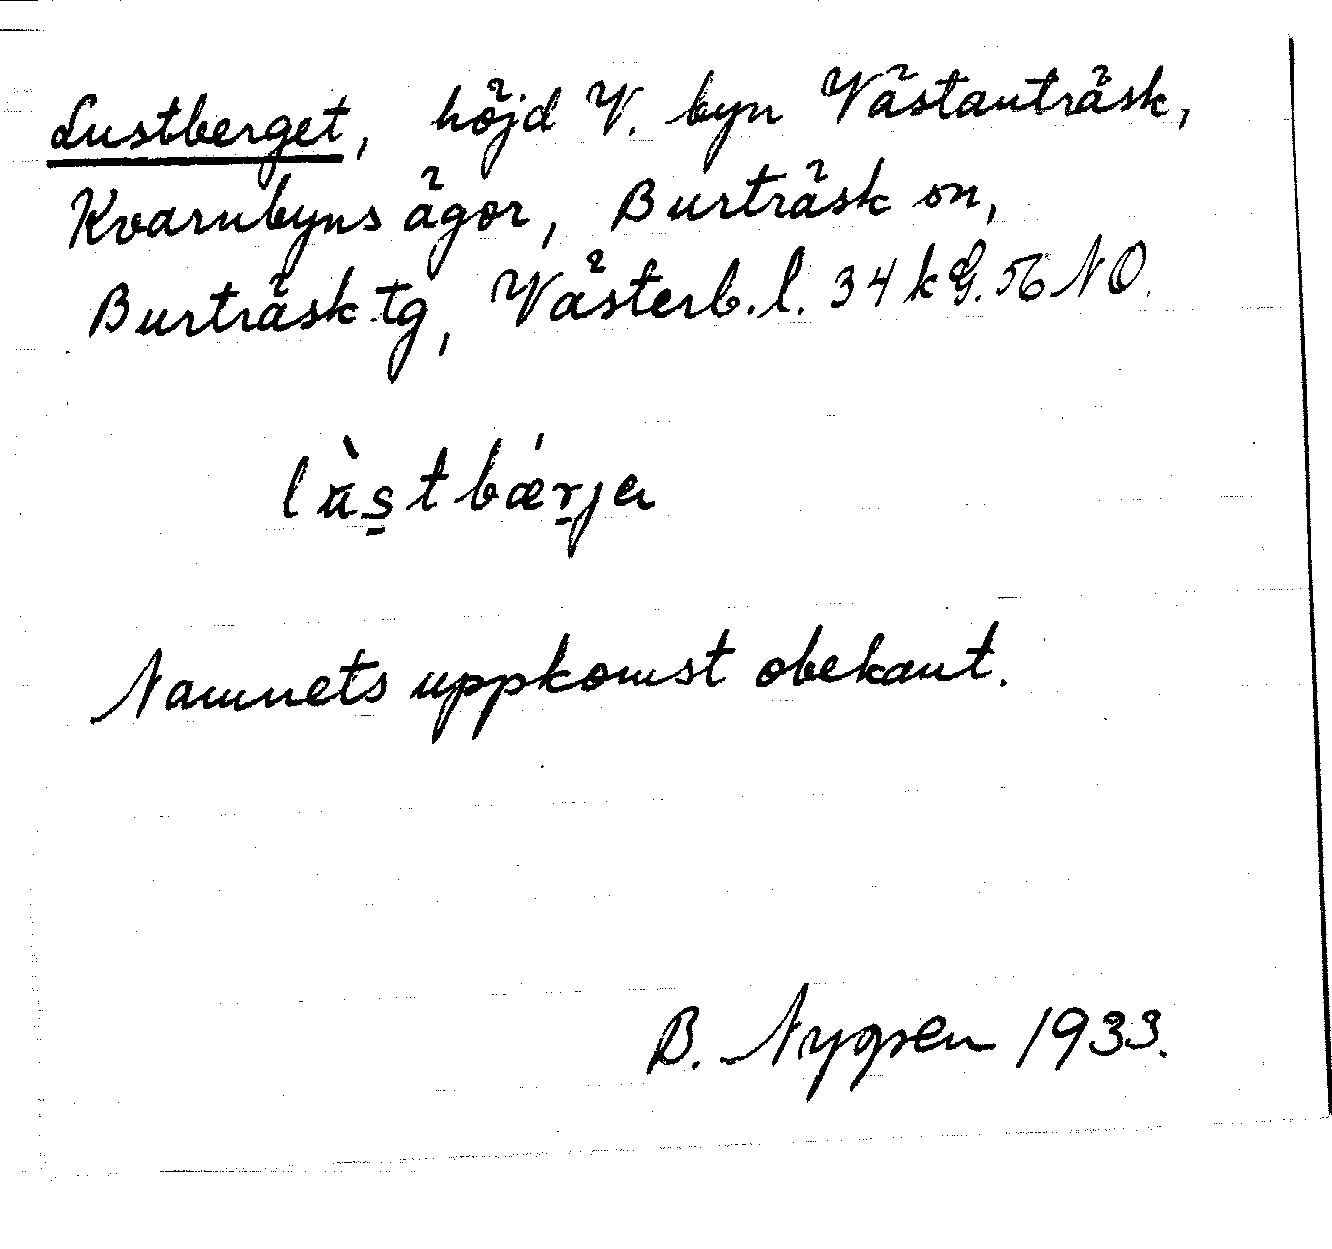 Lustberget, höjd V. byn Västanträsk,
Kvarnbyns ägor, Burträsk sn,
Burträsk tg, Västerb. l. 34 k G. 56 NO.
lùstbǽrja
Namnets uppkomst obekant.
B. 1933.